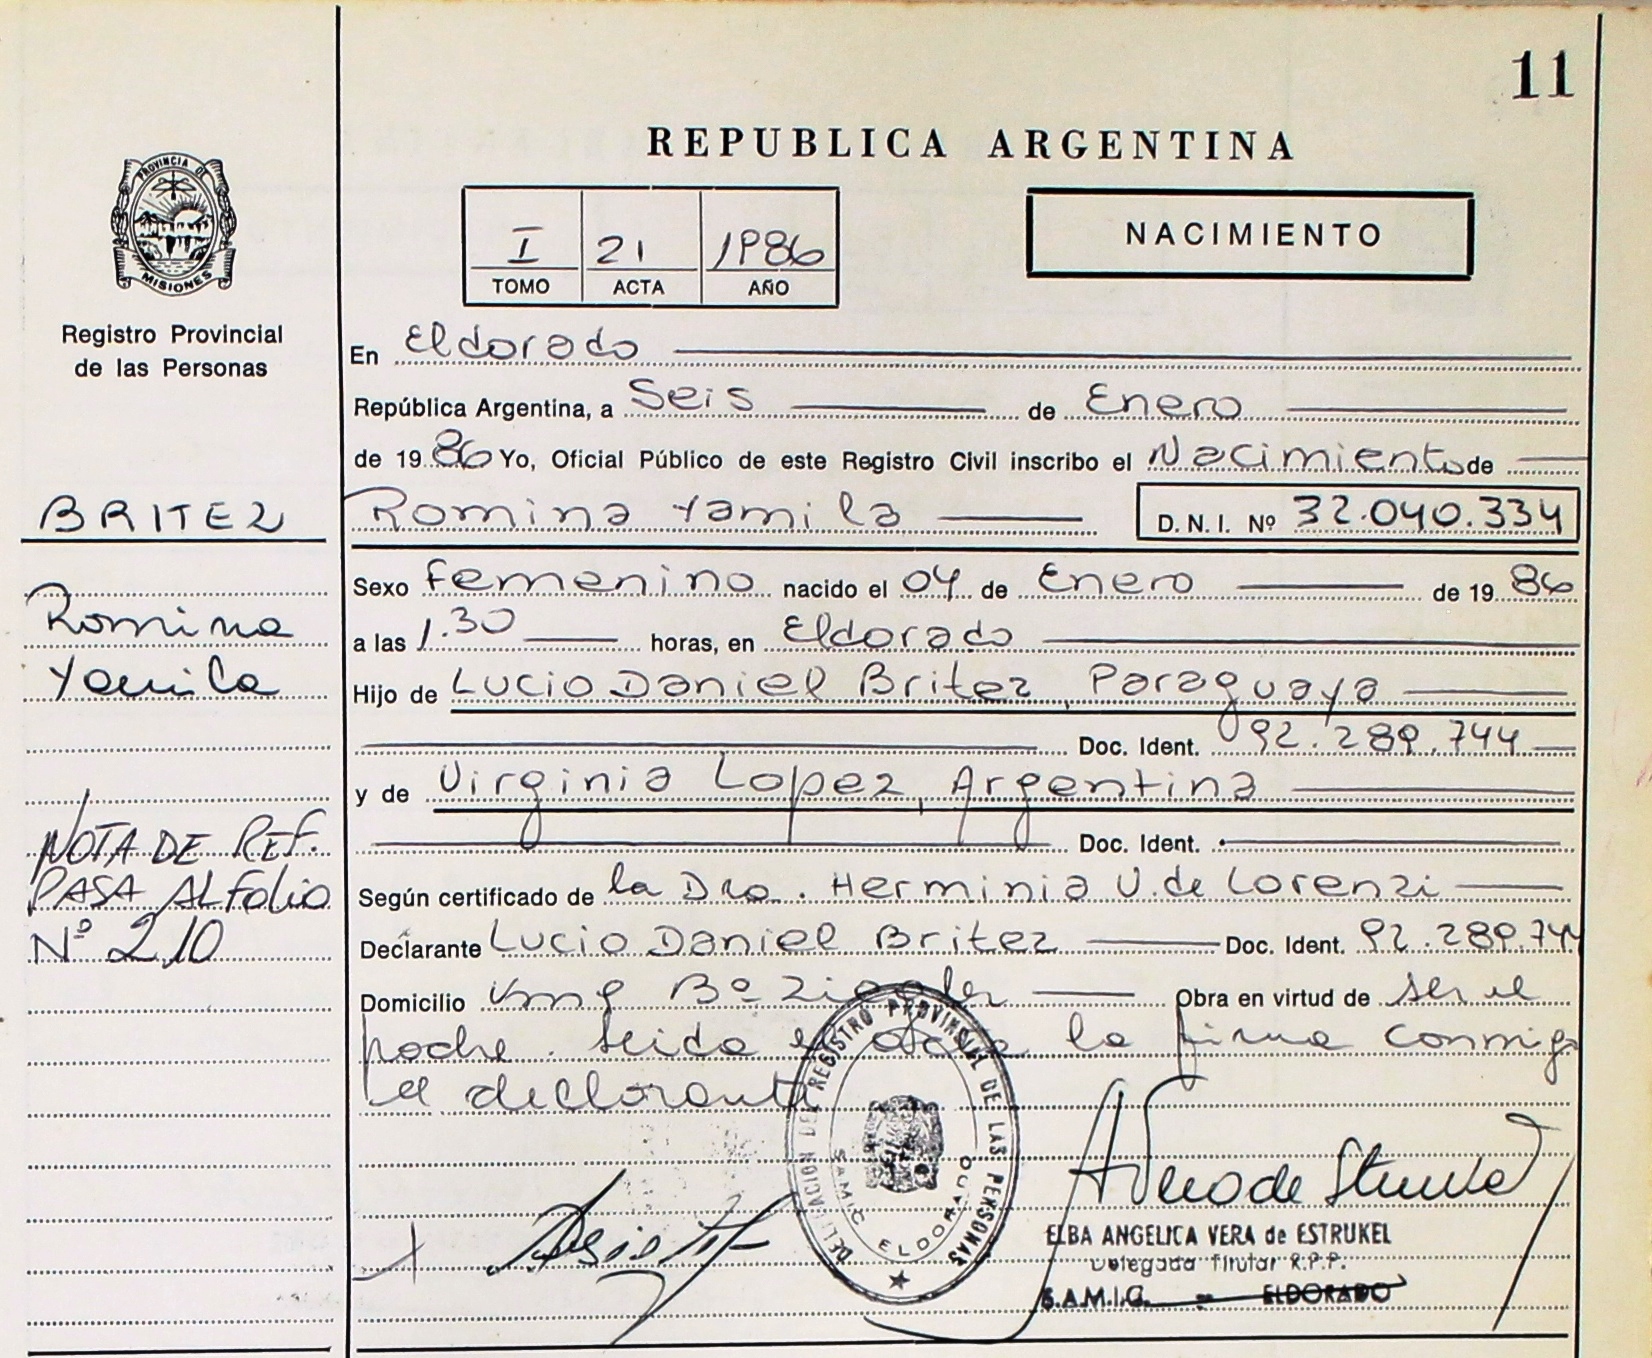 11
REPUBLICA ARGENTINA
PROVINCIA DE
MISIONES
Registro Provincial
de las Personas
I 21 1986
TOMO ACTA AÑO
NACIMIENTO
En Eldorado
República Argentina, a Seis de Enero
de 1986 Yo, Oficial Público de este Registro Civil inscribo el Nacimiento de
BRITEZ
Romina Yamila D.N.I. Nº 32.040.334
Sexo femenino nacido el 04 de Enero de 1986
Romina
a las 1.30 horas, en Eldorado
Yamila
Hijo de Lucio Daniel Britez, Paraguaya
Doc. Ident. 92.289.744
y de Virginia Lopez, Argentina
Doc. Ident.
NOTA DE REF.
PASA AL Folio
Nº 210
Según certificado de la Dra. Herminia V. de Lorenzi
Declarante Lucio Daniel Britez Doc. Ident. 92.289.744
Domicilio Km 9 Bº Ziegler Obra en virtud de ser el
padre. Leida el acta la firma conmigo
el declarante
DELEGACION DEL REGISTRO PROVINCIAL DE LAS PERSONAS
S.A.M.I.C. ELDORADO
ELBA ANGELICA VERA de ESTRUKEL
Delegada Titular R.P.P.
S.A.M.I.C. - ELDORADO